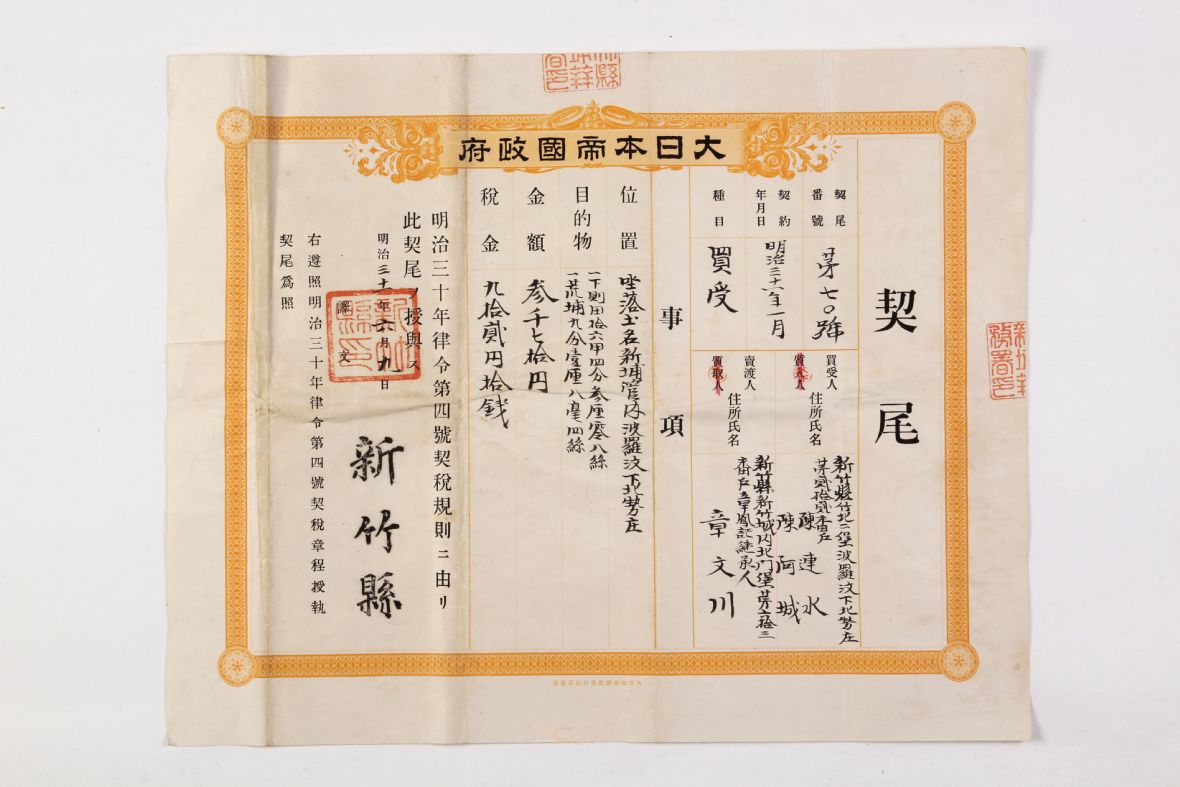 大日本帝國政府
契尾
契尾番號
第七〇號
契約年月日
明治三十一年一月
種目
買受
買受人
質入人
住所氏名
新竹縣竹北二堡波羅汶下北勢庄
第貳拾貳番戶
陳連水
陳阿城
賣渡人
質取人
住所氏名
新竹縣新竹城內北門堡第六拾三
番戶
章文川
事項
位置
坐落土名新埔管內波羅汶下北勢庄
目的物
一下則田拾六甲四分參厘零八絲
一荒埔九分壹厘八毫四絲
金額
參千七拾円
稅金
九拾貳円拾錢
明治三十年律令第四號契稅規則ニ由リ
此契尾ノ授與ス
明治三十一年六月九日
新竹縣
譯文
右遵照明治三十年律令第四號契稅章程授執
契尾爲照